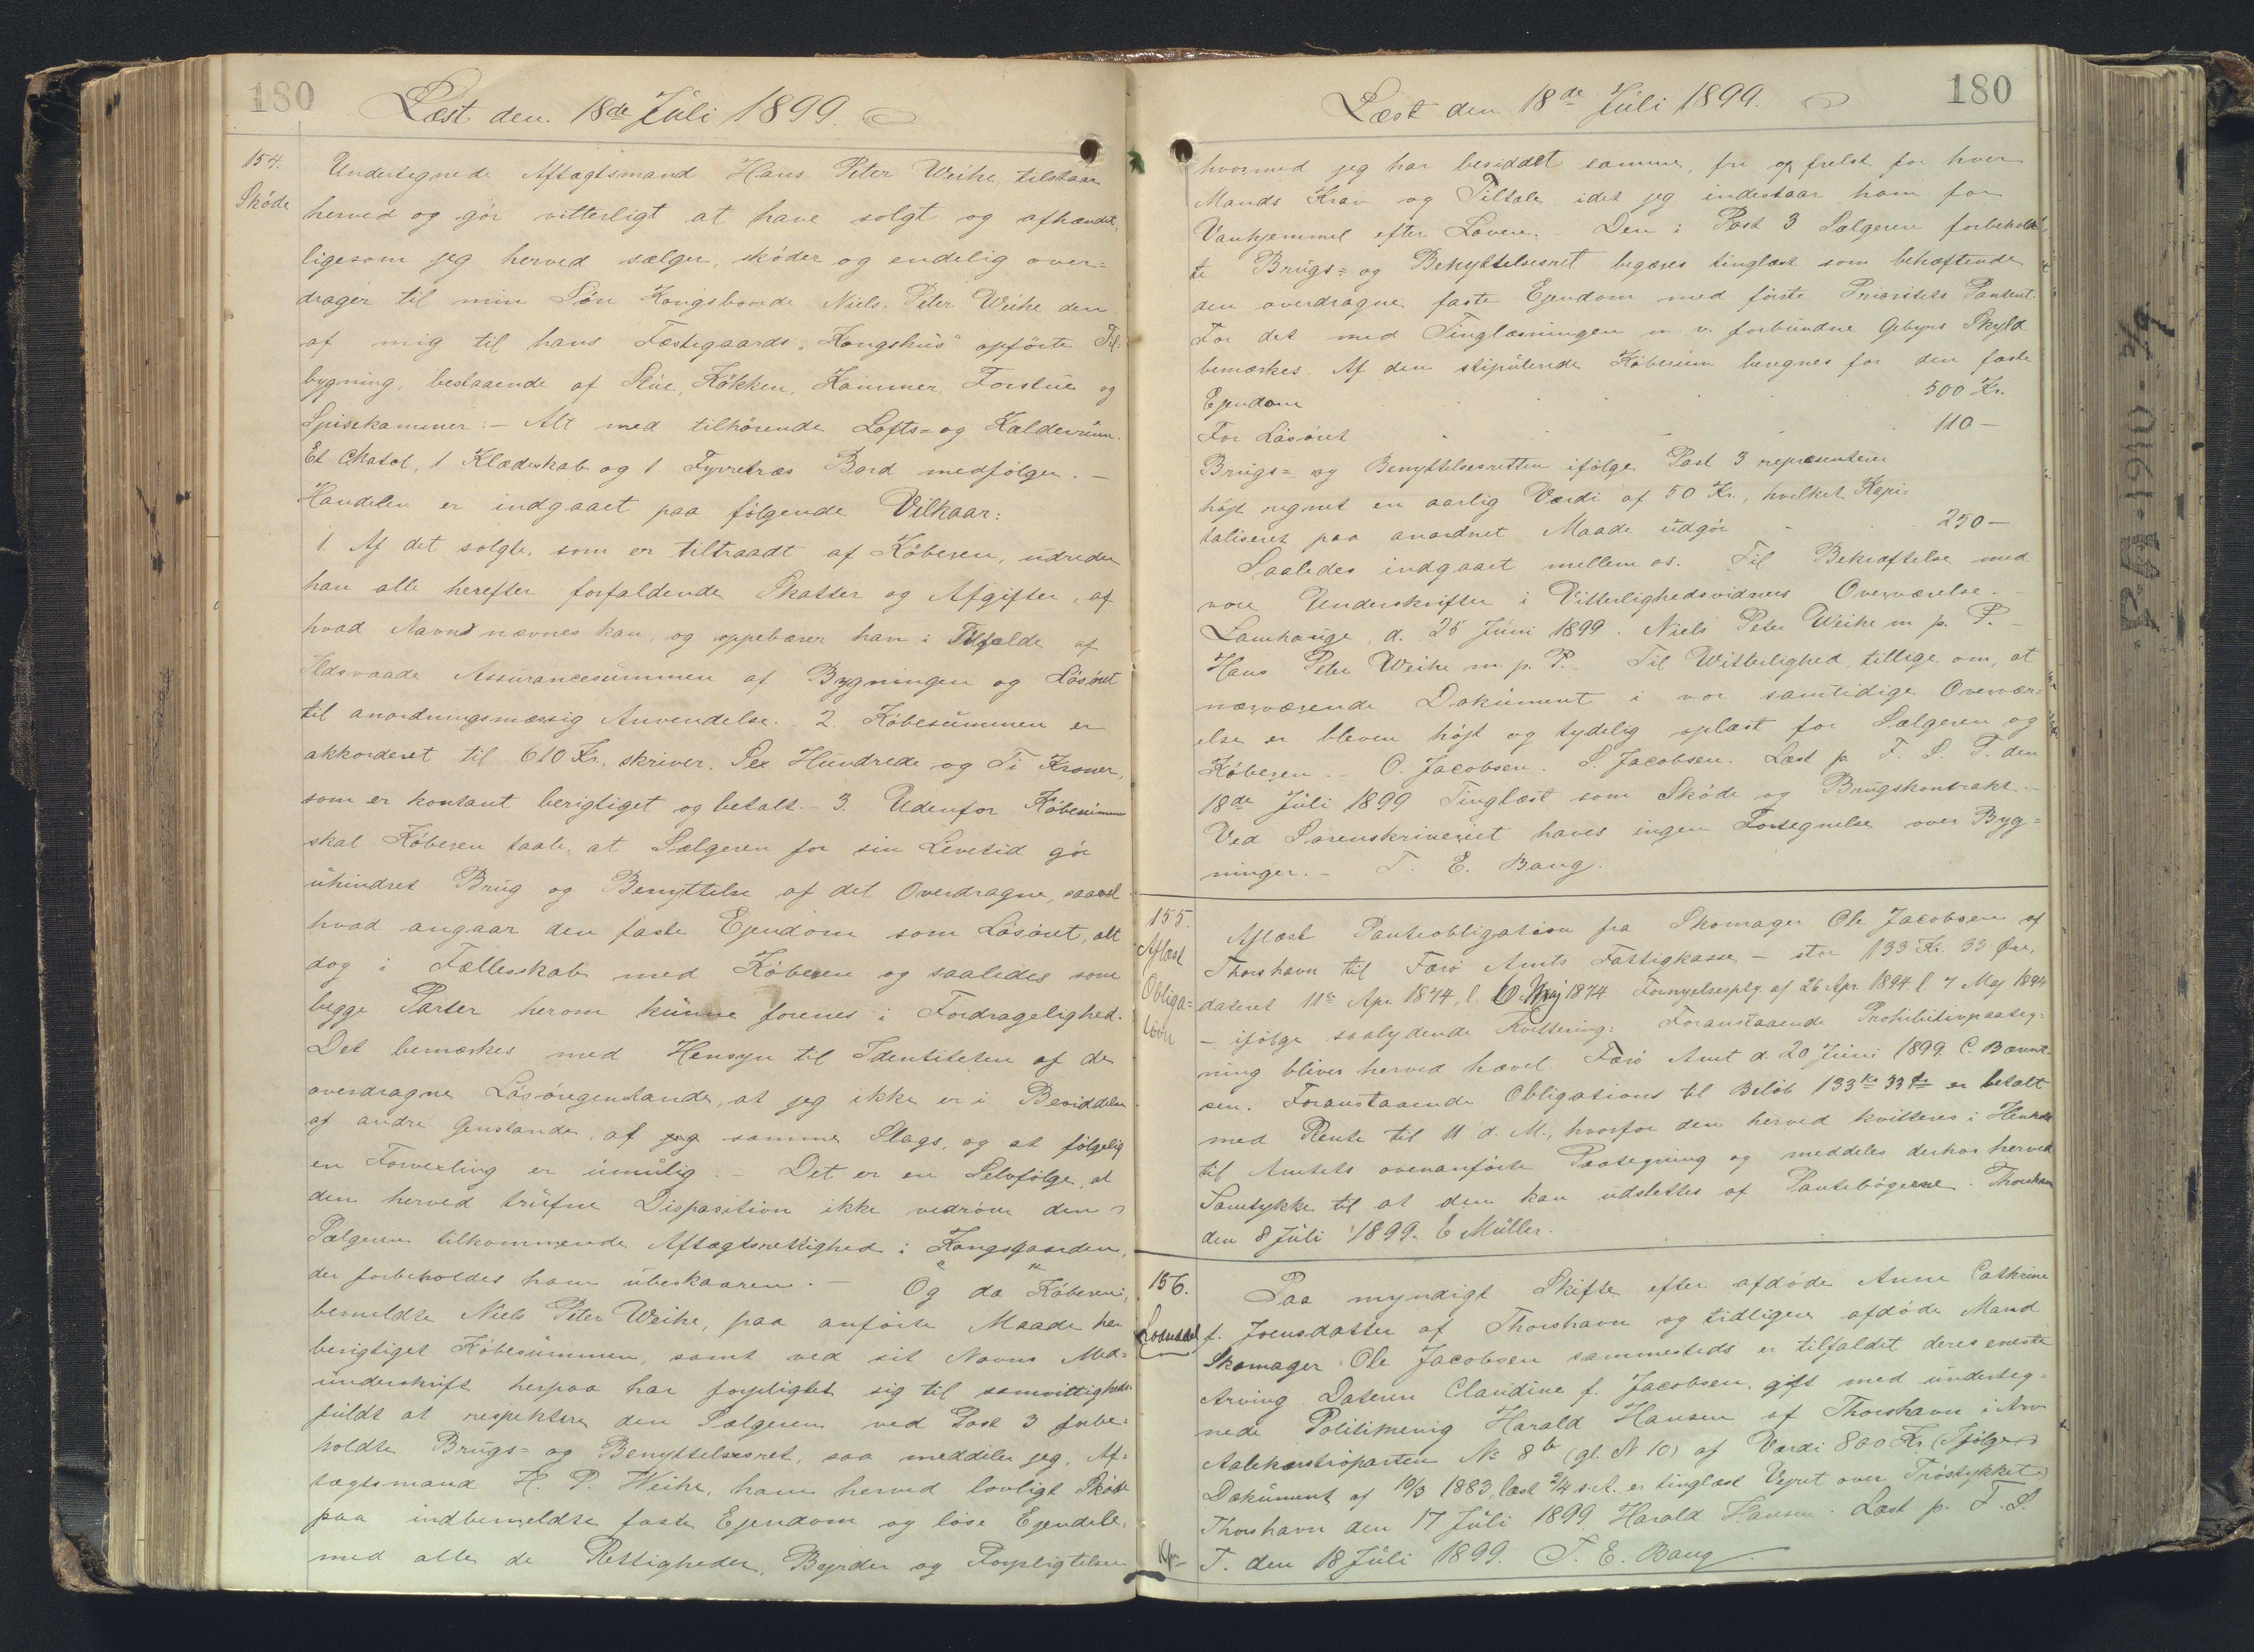 180
Læst den 18de Juli 1899.
154.
Skøde
Undertegnede Aftægtsmand Hans Peter Weihe tilstaar
herved og gør vitterligt at have solgt og afhændet,
ligesom jeg herved sælger, skøder og endelig over=
drager til min Søn Kongsbonde Niels Peter Weihe den
af mig til hans Fæstegaards "Kongshus" opførte Til=
bygning, bestaaende af Stue, Køkken, Kammer, Forstue og
Spisekammer: - Alt med tilhørende Lofts= og Kælderrum.
Et Chatol, 1 Klædeskab og 1 Fyrretræs Bord medfølger. -
Handelen er indgaaet paa følgende Vilkaar:
1. Af det solgte, som er tiltraadt af Køberen, udreder
han alle herefter forfaldende Skatter og Afgifter, af
hvad Navn nævnes kan, og oppebærer han i Tilfælde af
Ildsvaade Assurancesummen af Bygningen og Løsøret
til anordningsmæssig Anvendelse. - 2. Købesummen er
akkorderet til 610 Kr. skriver. Sex Hundrede og Ti Kroner,
som er kontant berigtiget og betalt. - 3. Udenfor Købesummen
skal Køberen taale, at Sælgeren for sin Levetid gør
uhindret Brug og Benyttelse af det Overdragne, saavel
hvad angaar den faste Ejendom som Løsøret, alt
dog i Fællesskab med Køberen og saaledes som
begge Parter herom kunne forenes i Fordragelighed.
Det bemærkes med Hensyn til Identiteten af de
overdragne Løsøregenstande, at jeg ikke er i Besiddelse
af andre Genstande, af jeg samme Slags, og at følgelig
en Forvexling er umulig. - Det er en Selvfølge, at
den herved trufne Disposition ikke vedrører den
Sælgeren tilkommende Aftægtsrettighed i Kongsgaarden,
der forbeholdes ham ubeskaaren. - Og da Køberen,
bemeldte Niels Peter Weihe, paa anførte Maade har
berigtiget Købesummen, samt ved sit Navns Med=
underskrift herpaa har forpligtet sig til samvittigheds
fuldt at respektere den Sælgeren ved Post 3 forbe=
holdte Brugs= og Benyttelsesret, saa meddeler jeg, Af=
tægtsmand H. P. Weihe, ham herved lovligt Skøde
paa indbemeldte faste Ejendom og løse Ejendele,
med alle de Rettigheder, Byrder og Forpligtelser
180
Læst den 18de Juli 1899.
hvormed jeg har besiddet samme, fri og frelst for hver
Mands Krav og Tiltale, idet jeg indestaar ham for
Vanhjemmel efter Loven. - Den i Post 3 Sælgeren forbehold=
te Brugs= og Benyttelsesret begæres tinglæst som behæftende
den overdragne faste Ejendom med første Prioritets Panteret.
For det med Tinglæsningen m. v. forbundne Gebyrs Skyld
bemærkes. Af den stipulerede Købesum beregnes for den faste
Ejendom 500 Kr.
For Løsøret 110 -
Brugs= og Benyttelsesretten ifølge Post 3 repræsenterer
højt regnet en aarlig Værdi af 50 Kr., hvilket Kapi=
taliseret paa anordnet Maade udgør 250 -
Saaledes indgaaet mellem os. Til Bekræftelse med
vore Underskrifter i Vitterlighedsvidners Overværelse. -
Lamhauge, d. 25 Juni 1899. Niels Peter Weihe m. p. P. -
Hans Peter Weihe m. p. P. - Til Witterlighed, tillige om, at
nærværende Dokument i vor samtidige Overvær=
else er bleven højt og tydelig oplæst for Sælgeren og
Køberen. - O. Jacobsen. S. Jacobsen. Læst p. F. S. T. den
18de Juli 1899 Tinglæst som Skøde og Brugskontrakt. -
Ved Sorenskriveriet haves ingen Fortegnelse over Byg=
ninger. - T. E. Bang.
155.
Aflæst
Obliga=
tion
Aflæst Panteobligation fra Skomager Ole Jacobsen af
Thorshavn til Færø Amts Fattigkasse - stor 133 Kr. 33 Øre,
dateret 11te Apr. 1874, l. 6. Maj 1874 Fornyelsesptg. af 26 Apr. 1894 l 7 Maj 1894
- ifølge saalydende Kvittering: Foranstaaende Prohibitivpaateg=
ning bliver herved hævet. Færø Amt d. 20 Juni 1899. C. Bærent=
sen. Foranstaaende Obligations til Beløb 133 Kr 33 Ør er betalt
med Rente til 11 d. M., hvorfor den herved kvitteres i Henhold
til Amtets ovenanførte Paategning og meddeles derhos herved
Samtykke til at den kan udslettes af Pantebøgerne. Thorshavn
den 8 Juli 1899. E Müller.
156.
Lodseddel
Paa myndigt Skifte efter afdøde Anne Cathrine
f. Joensdatter af Thorshavn og tidligere afdøde Mand
Skomager Ole Jacobsen sammesteds er tilfaldet deres eneste
Arving Datteren Claudine f. Jacobsen, gift med underteg=
nede Politimenig Harald Hansen af Thorshavn i Arv
Aalekærstrøparten No 8b (gl. N 10) af Værdi 800 Kr. (Ifølge
Dokument af 10/3 1883, læst 2/4 s. A. er tinglæst Vejret over Trøstykket)
Thorshavn den 17 Juli 1899 Harald Hansen. Læst p. F. S.
T. den 18 Juli 1899. T. E. Bang